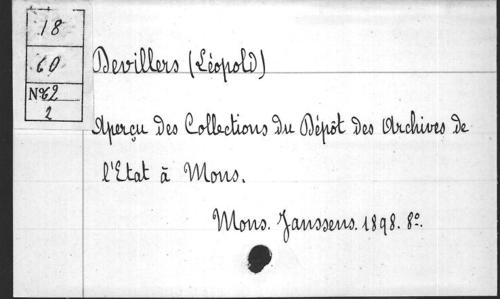 18
60
Nº62
2
Devillers (Léopold)
Aperçu des Collections du Dépôt des Archives de
l'Etat à Mons.
Mons. Janssens. 1898. 8º.